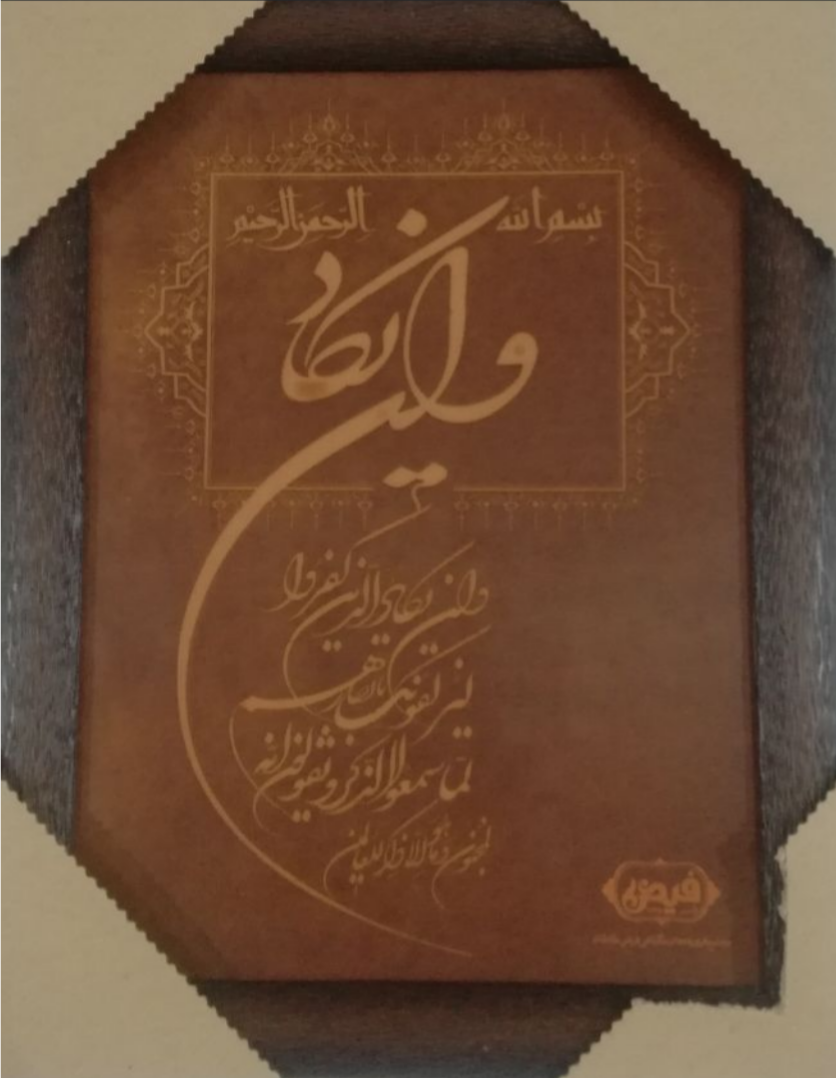 بسم الله الرحمن الرحيم
وان يكاد
وان يكاد الذين كفروا
ليزلقونك بابصارهم
لما سمعوا الذكر ويقولون انه
لمجنون وما هو الا ذكر للعالمين
فیض